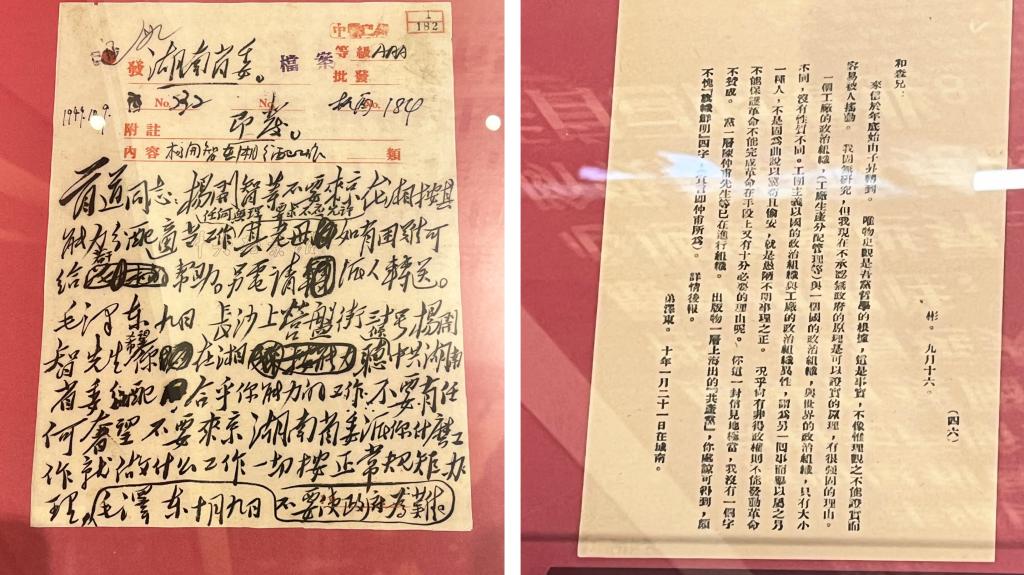 1
182
等級 AAA
發 湖南省委。 檔案 批發
No. 332 No. No. 184
1949.10.9
附註 即發。
內容 類
首道同志：楊開智等不要來京，在湘按其
能力分配適當工作，任何無理要求不應允許
其老母如有困難可
給 幫助。另電請派人轉送。
毛澤東 九日 長沙上營盤街三十號楊開
智先生 希望你 在湘 聽中共湖南
省委分配 合乎你能力的工作不要有任
何奢望不要來京湖南省委派你什麽工
作就做什么工作一切按正常規矩办
理 毛澤东十月九日 不要使政府為難
（四六）
彬。九月十六。
和森兄：
來信於年底始由子昇轉到。唯物史觀是吾黨哲學的根據，這是事實，不像惟理觀之不能證實而
容易被人搖動。我固無研究，但我現在不承認無政府的原理是可以證實的原理，有很强固的理由。
一個工廠的政治組織，（工廠生產分配管理等）與一個國的政治組織，與世界的政治組織，只有大小
不同，沒有性質不同。工團主義以國的政治組織與工廠的政治組織異性，謂爲另一囘事而舉以屬之另
一種人，不是固爲曲說以冀苟且偷安，就是愚陋不明事理之正。況乎尚有非得政權則不能發動革命
不能保護革命不能完成革命在手段上又有十分必要的理由呢。你這一封信見地極當，我沒有一個字
不贊成。黨一層陳仲甫先生等已在進行組織。出版物一層上海出的「共產黨」，你處諒可得到，頗
不愧「旗幟鮮明」四字（宣言卽仲甫所爲）。詳情後報。
弟澤東。十年一月二十一日在城南。